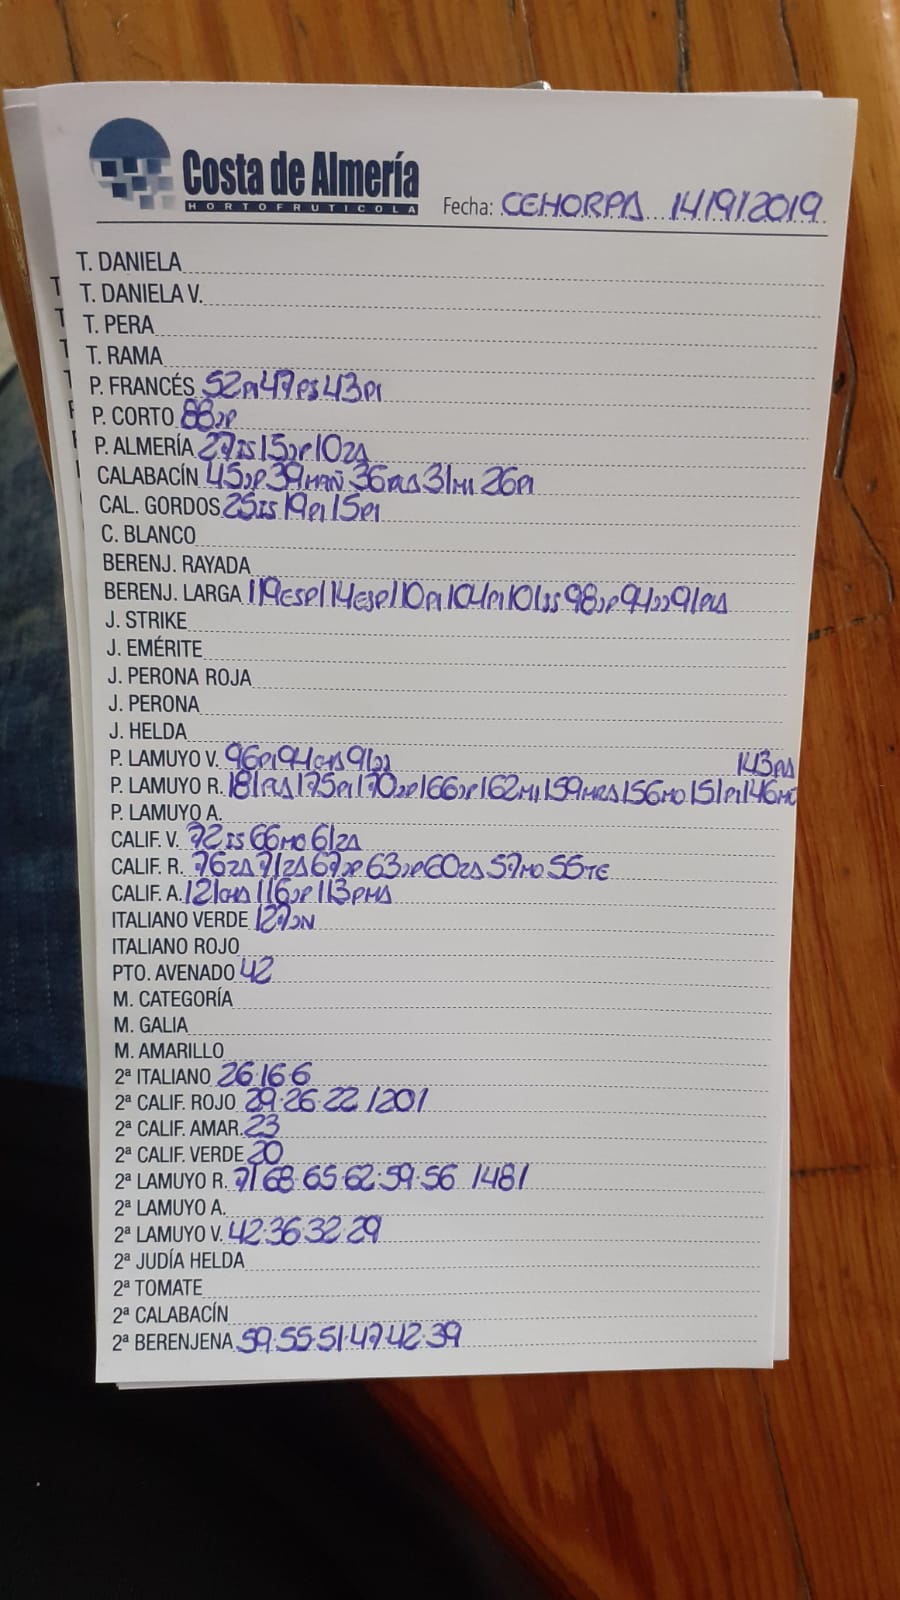 Costa de Almería
HORTOFRUTICOLA
Fecha: CEHORPA 14/9/2019
T. DANIELA
T. DANIELA V.
T. PERA
T. RAMA
P. FRANCÉS 52PI 47PS 43PI
P. CORTO 88JP
P. ALMERÍA 27IS 15JP 10ZA
CALABACÍN 45JP 39MAÑ 36PLA 31MI 26PI
CAL. GORDOS 25IS 19PI 15PI
C. BLANCO
BERENJ. RAYADA
BERENJ. LARGA 119ESP 114ESP 110PI 104PI 101SS 98JP 94JJ 91PLA
J. STRIKE
J. EMÉRITE
J. PERONA ROJA
J. PERONA
J. HELDA
P. LAMUYO V. 96PI 94CHA 91JJ 143PA
P. LAMUYO R. 181PLA 175PI 170JP 166JP 162MI 159MRA 156MO 151PI 146MC
P. LAMUYO A.
CALIF. V. 72IS 66MO 61ZA
CALIF. R. 76ZA 71ZA 67JP 63JP 60ZA 57MO 55TE
CALIF. A. 121CHA 116JP 113PMA
ITALIANO VERDE 127JN
ITALIANO ROJO
PTO. AVENADO 42
M. CATEGORÍA
M. GALIA
M. AMARILLO
2ª ITALIANO 26·16·6
2ª CALIF. ROJO 29·26·22 /201
2ª CALIF. AMAR. 23
2ª CALIF. VERDE 20
2ª LAMUYO R. 71·68·65·62·59·56 /481
2ª LAMUYO A.
2ª LAMUYO V. 42·36·32·29
2ª JUDÍA HELDA
2ª TOMATE
2ª CALABACÍN
2ª BERENJENA 59·55·51·47·42·39